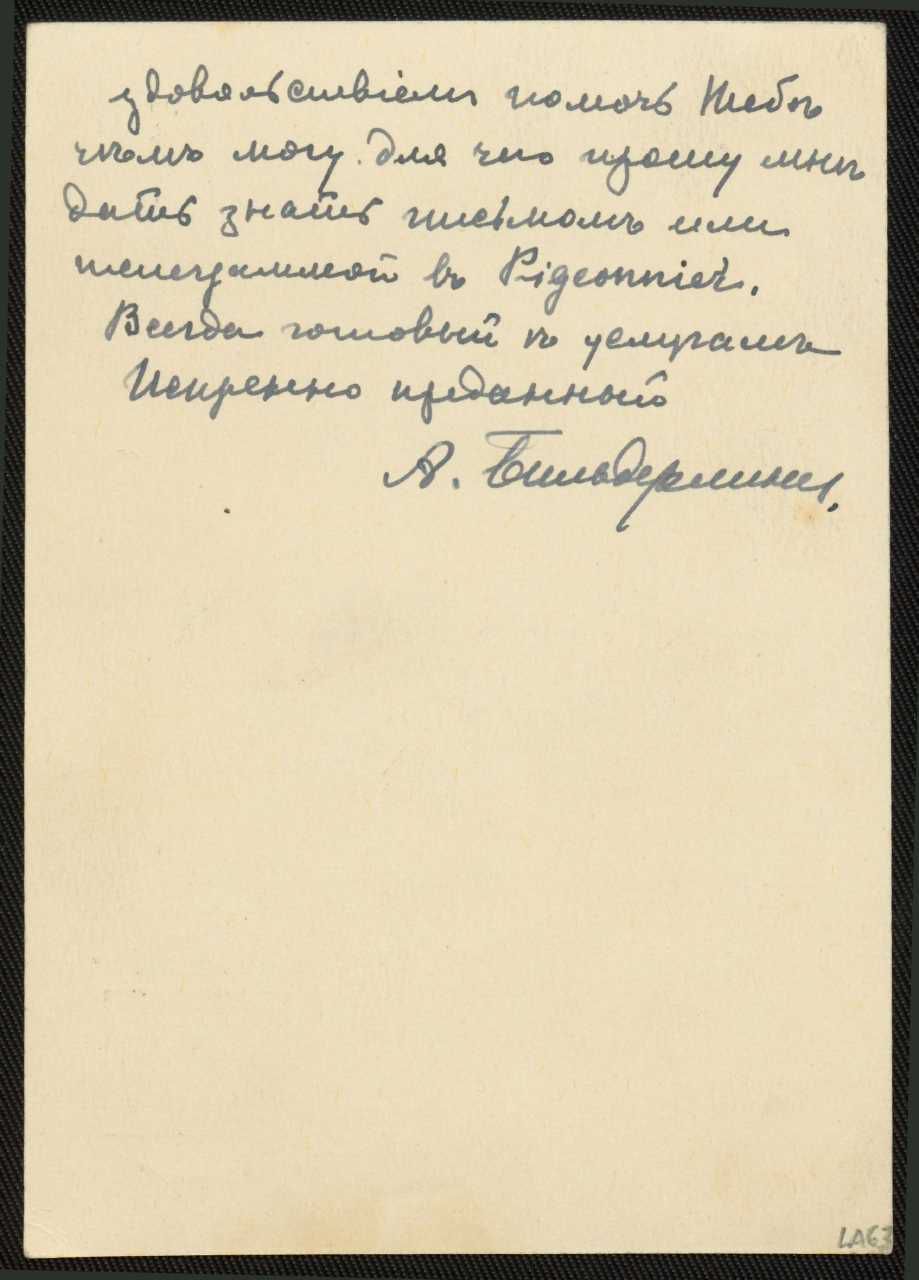 удовольствіемъ помочь Тебѣ
чѣмъ могу. для чего прошу мнѣ
дать знать письмомъ или
телеграммой въ Pigeonnier.
Всегда готовый къ услугамъ
Искренно преданный
А. Бильдерлингъ.
LA63